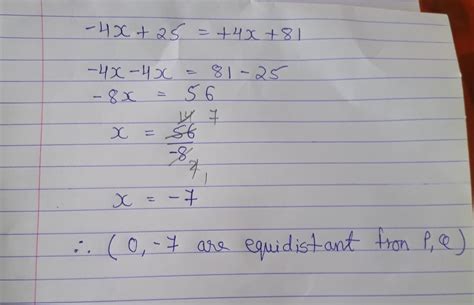 -4x + 25 = +4x + 81
-4x - 4x = 81 - 25
-8x = 56
14 7
x = 56
-8
2 1
x = -7
∴ (0, -7 are equidistant fron P, Q)